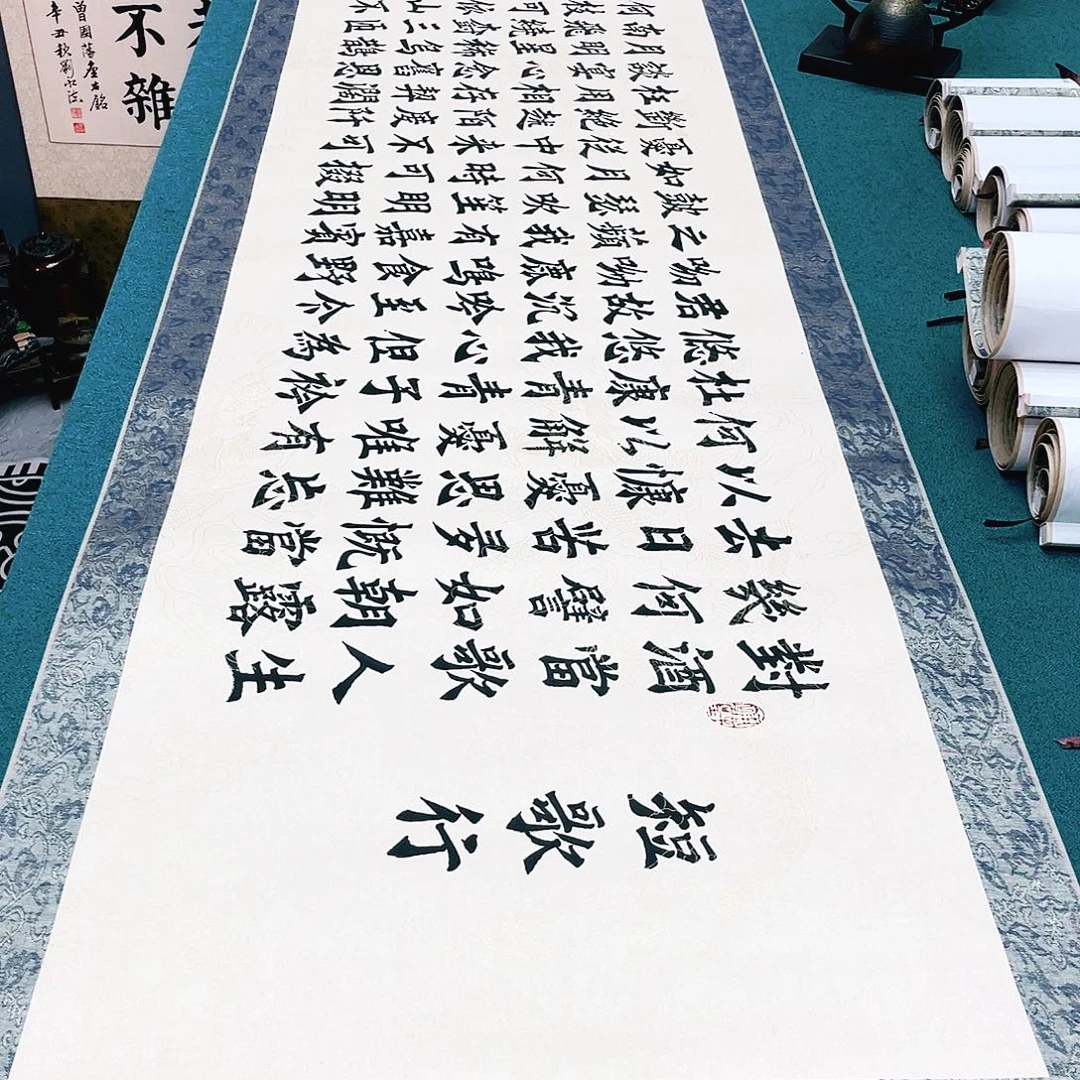 短歌行
對酒當歌人生
幾何譬如朝露
去日苦多慨當
以慷憂思難忘
何以解憂唯有
杜康青青子衿
悠悠我心但為
君故沉吟至今
呦呦鹿鳴食野
之蘋我有嘉賓
鼓瑟吹笙明明
如月何時可掇
憂從中来不可
斷絕越陌度阡
枉用相存契闊
談宴心念舊恩
月明星稀烏鵲
南飛繞樹三匝
何枝可依山不
不雜
曾國藩座右銘
辛丑秋劉